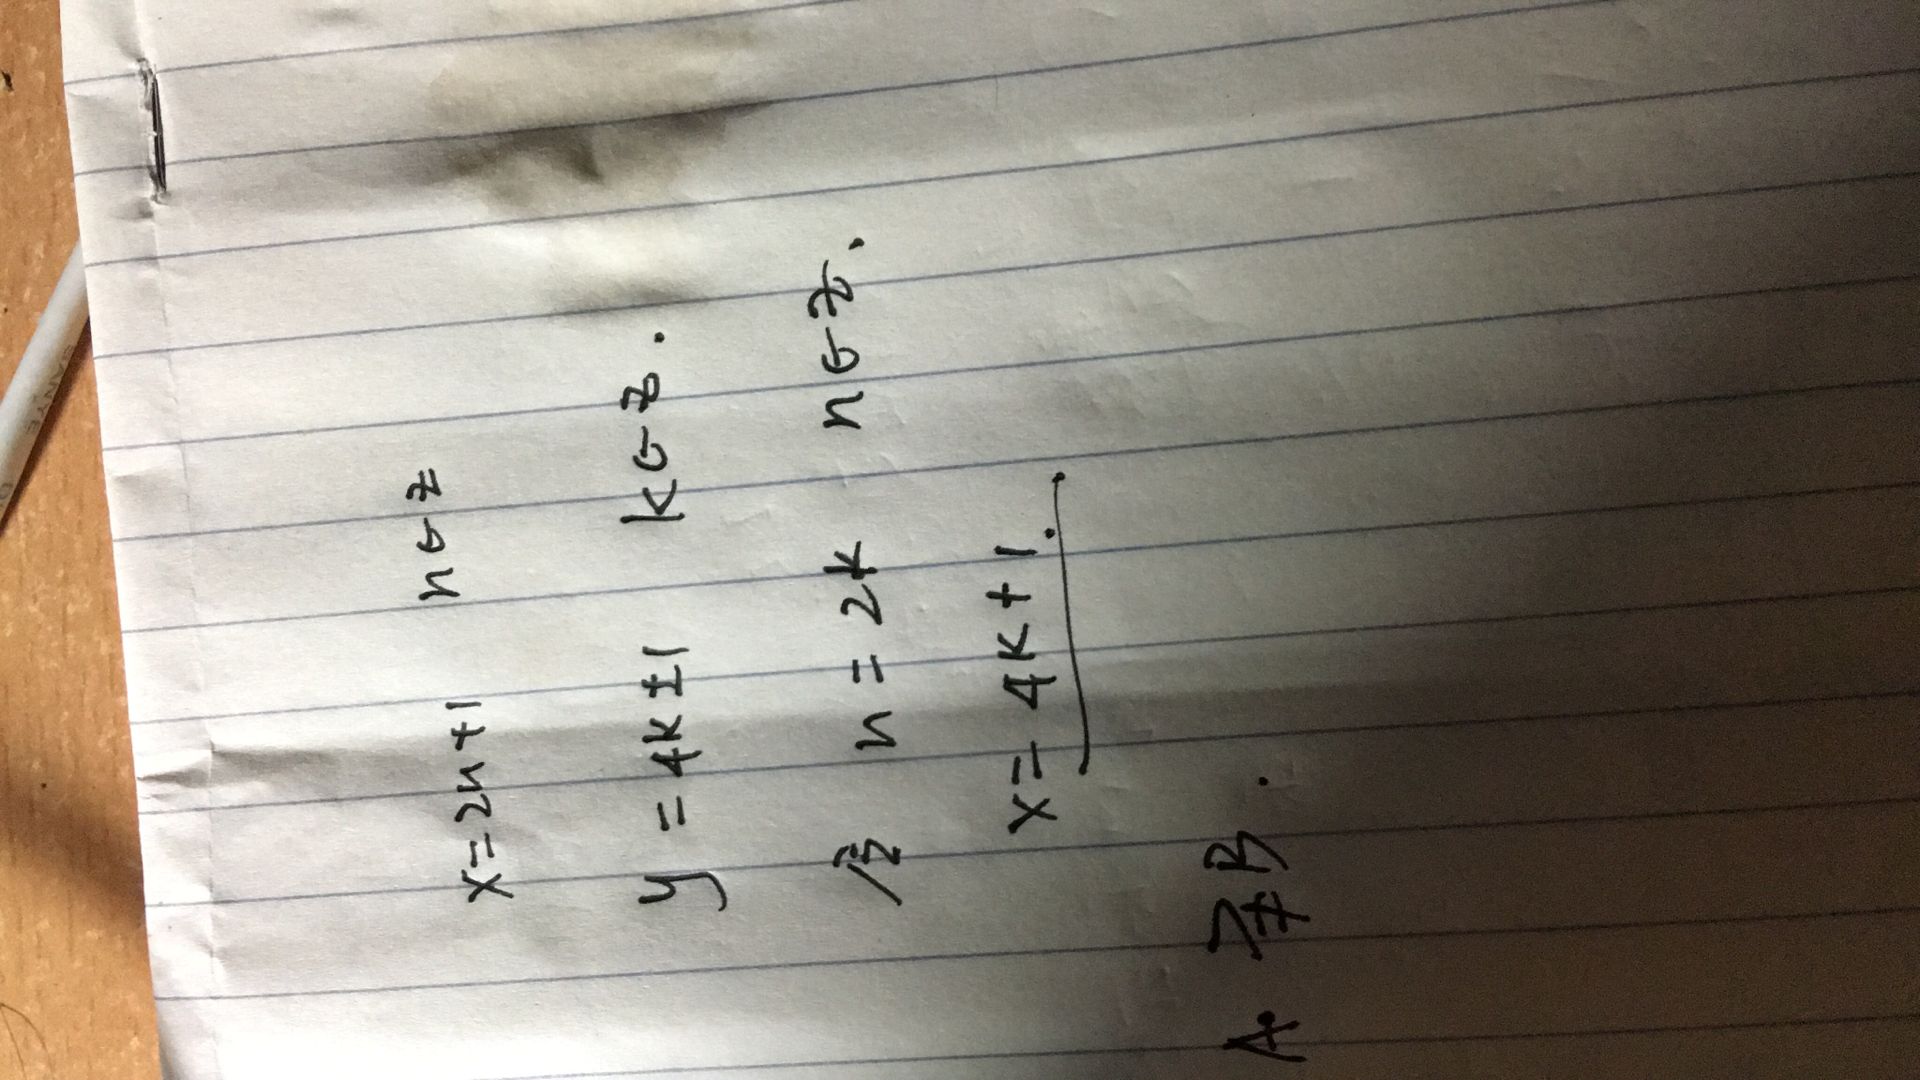 x=2n+1 n∈Z
y=4k±1 k∈Z.
设 n=2k n∈Z.
x=4k+1.
A⫌B.